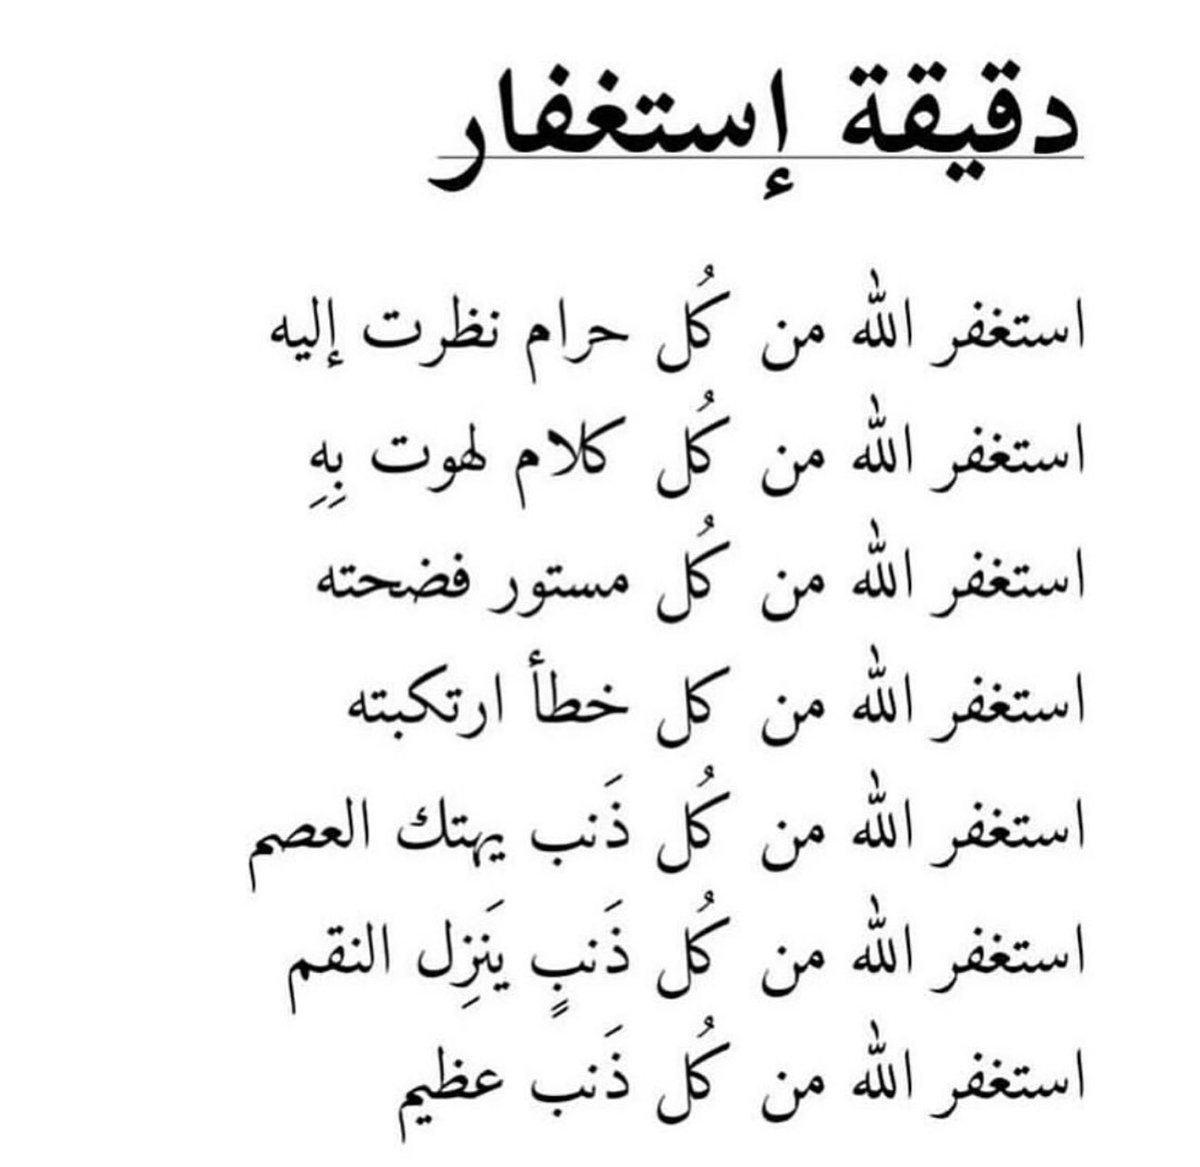 دقيقة إستغفار
استغفر الله من كُل حرام نظرت إليه
استغفر الله من كُل كلام لهوت بِهِ
استغفر الله من كُل مستور فضحته
استغفر الله من كل خطأ ارتكبته
استغفر الله من كُل ذَنب يهتك العصم
استغفر الله من كُل ذَنبٍ يَنزِل النقم
استغفر الله من كُل ذَنب عظيم